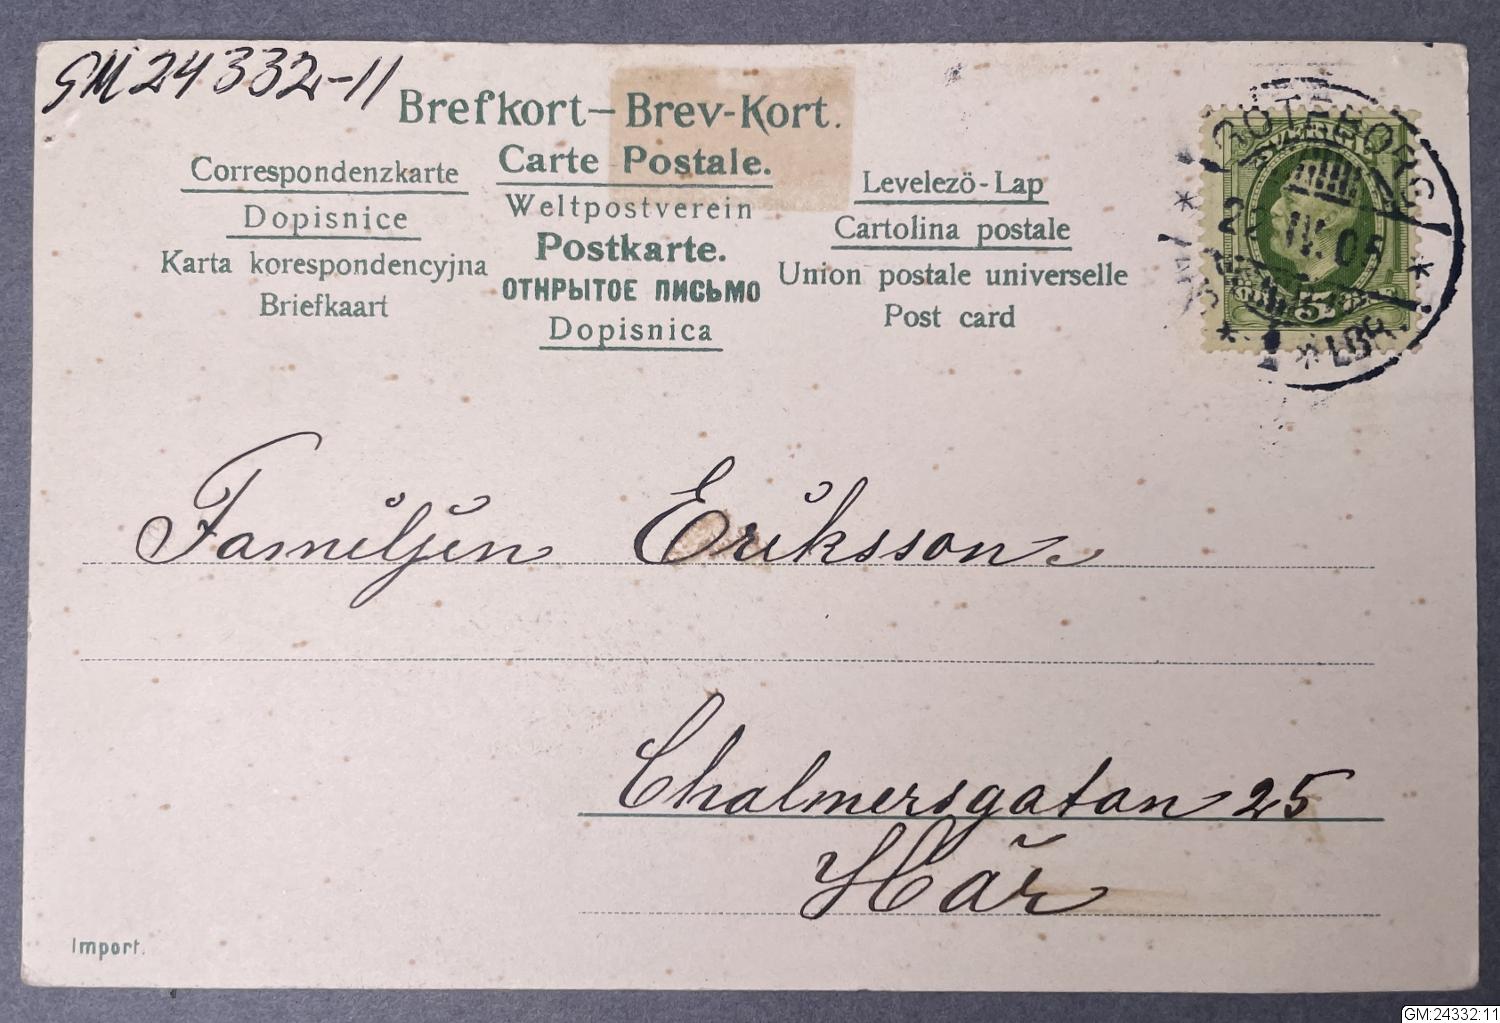 GM 24332-11
Brefkort–Brev-Kort.
Carte Postale.
Weltpostverein
Postkarte.
ОТКРЫТОЕ ПИСЬМО
Dopisnica
Correspondenzkarte
Dopisnice
Karta korespondencyjna
Briefkaart
Levelezö-Lap
Cartolina postale
Union postale universelle
Post card
GÖTEBORG
IV. 05
LBR.
5
Familjen Eriksson
Chalmersgatan 25
Här
Import.
GM:24332:11